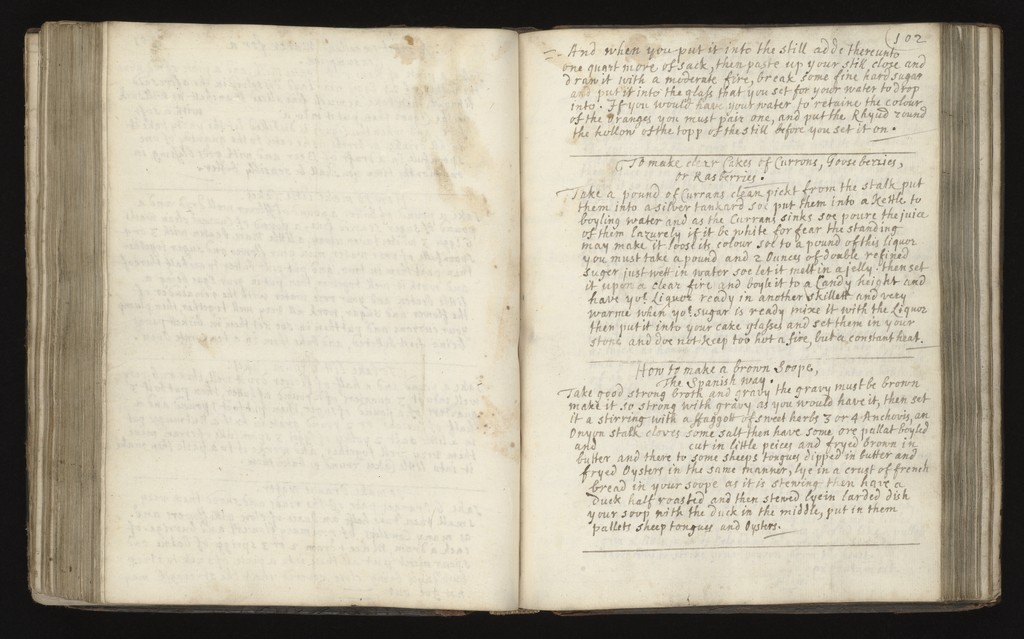 (102
And when you put it into the still adde thereunto
one quart more of sack, then paste up your still close and
draw it with a moderate fire, break some fine hard sugar
and put it into the glass that you set for your water to drop
into. If you would have your water to retaine the colour
of the Oranges you must pair one, and put the Rhyud round
the hollow of the topp of the still before you set it on.
To make clear Cakes of Currons, Gooseberries,
or Rasberries.
Take a pound of Currans clean pickt from the stalk put
them into a silver tankard soe put them into a Kettle to
boyling water and as the Currans sinks soe poure the juice
of them Lazurely if it be white for fear the standing
may make it loose its colour soe to a pound of this Liquor
you must take a pound and 2 Ounces of double refined
Suger just wett in water soe let it melt in a jelly then set
it upon a clear fire and boyle it to a Candy height and
have yor. Liquor ready in another skillett and very
warme when yor. Sugar is ready mixe it with the Liquor
then put it into your cake glasses and set them in your
stone and doe not keep too hot a fire, but a constant heat.
How to make a brown Soope,
The Spanish way.
Take good strong broth and gravy the gravy must be brown
make it so strong with gravy as you would have it, then set
it a stirring with a ffaggott of sweet herbs 3 or 4 Anchovis, an
Onyon stalk cloves some salt then have some ore pallat boyled
and cut in little peices and fryed brown in
butter and there to some sheeps tongues dipped in butter and
fryed Oysters in the same manner, lye in a crust of french
bread in your soope as it is stewing then have a
Duck half roasted and then stewed lye in larded dish
your soop with the duck in the middle, put in them
pallets sheep tongues and Oysters.